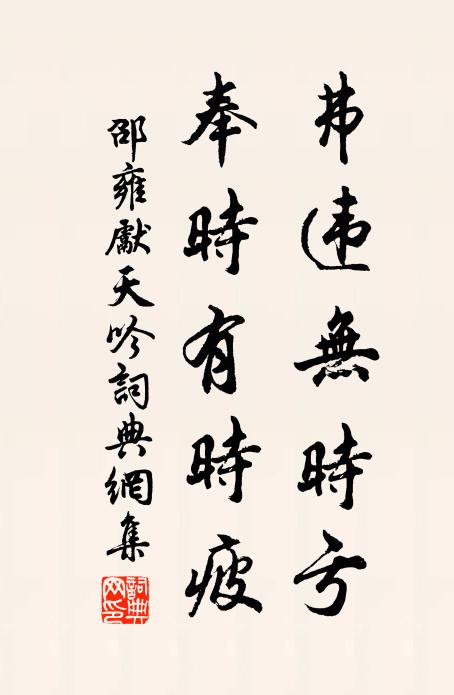 弗违無時亏
奉時有時疲
邵雍獻天吟詞典網集
詞典
网印